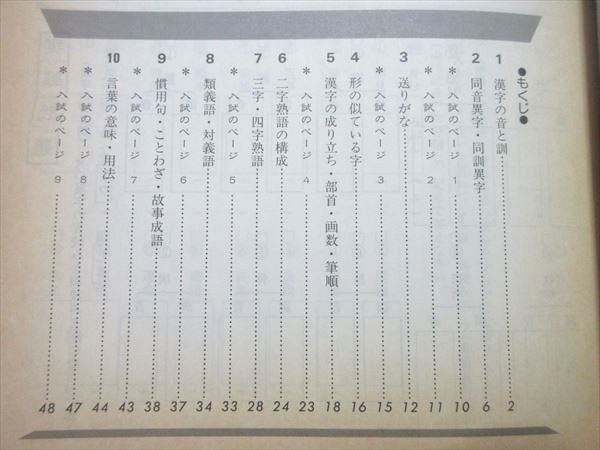 ●もくじ●
1 漢字の音と訓 2
2 同音異字・同訓異字 6
* 入試のページ 1 10
* 入試のページ 2 11
3 送りがな 12
* 入試のページ 3 15
4 形の似ている字 16
5 漢字の成り立ち・部首・画数・筆順 18
* 入試のページ 4 23
6 二字熟語の構成 24
7 三字・四字熟語 28
* 入試のページ 5 33
8 類義語・対義語 34
* 入試のページ 6 37
9 慣用句・ことわざ・故事成語 38
* 入試のページ 7 43
10 言葉の意味・用法 44
* 入試のページ 8 47
* 入試のページ 9 48